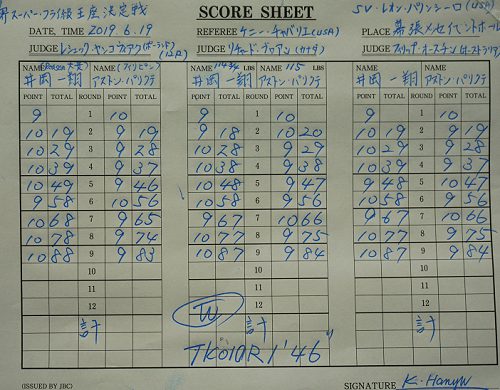 スーパー・フライ級王座決定戦 SCORE SHEET
DATE, TIME 2019.6.19 REFEREE ケニー・チャバリエ(USA) PLACE 幕張メッセイベントホール
JUDGE JUDGE リチャード・ブルアン(カナダ) JUDGE
NAME NAME (フィリピン) NAME LBS NAME 115 LBS NAME NAME
井岡一翔 アストン・パリクテ 井岡一翔 アストン・パリクテ 井岡一翔 アストン・パリクテ
POINT TOTAL ROUND POINT TOTAL POINT TOTAL ROUND POINT TOTAL POINT TOTAL ROUND POINT TOTAL
9 1 10 9 1 10 9 1 10
10 19 2 9 19 9 18 2 10 20 10 19 2 9 19
10 29 3 9 28 10 28 3 9 29 10 29 3 9 28
10 39 4 9 37 10 38 4 9 38 10 39 4 9 37
10 49 5 9 46 10 48 5 9 47 9 48 5 10 47
9 58 6 10 56 10 58 6 9 56 10 58 6 9 56
10 68 7 9 65 9 67 7 10 66 9 67 7 10 66
10 78 8 9 74 10 77 8 9 75 10 77 8 9 75
10 88 9 9 83 10 87 9 9 84 10 87 9 9 84
10 10 10
11 11 11
12 W 12 12
計 計 計
TKO10R1'46"
(ISSUED BY JBC) SIGNATURE